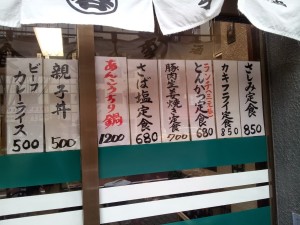 さしみ定食 850
カキフライ定食 850
ランチさーびす
とんかつ定食 680
豚肉生姜焼き定食 700
さば塩定食 680
あんこうちり鍋 1200
親子丼 500
ビーフカレーライス 500